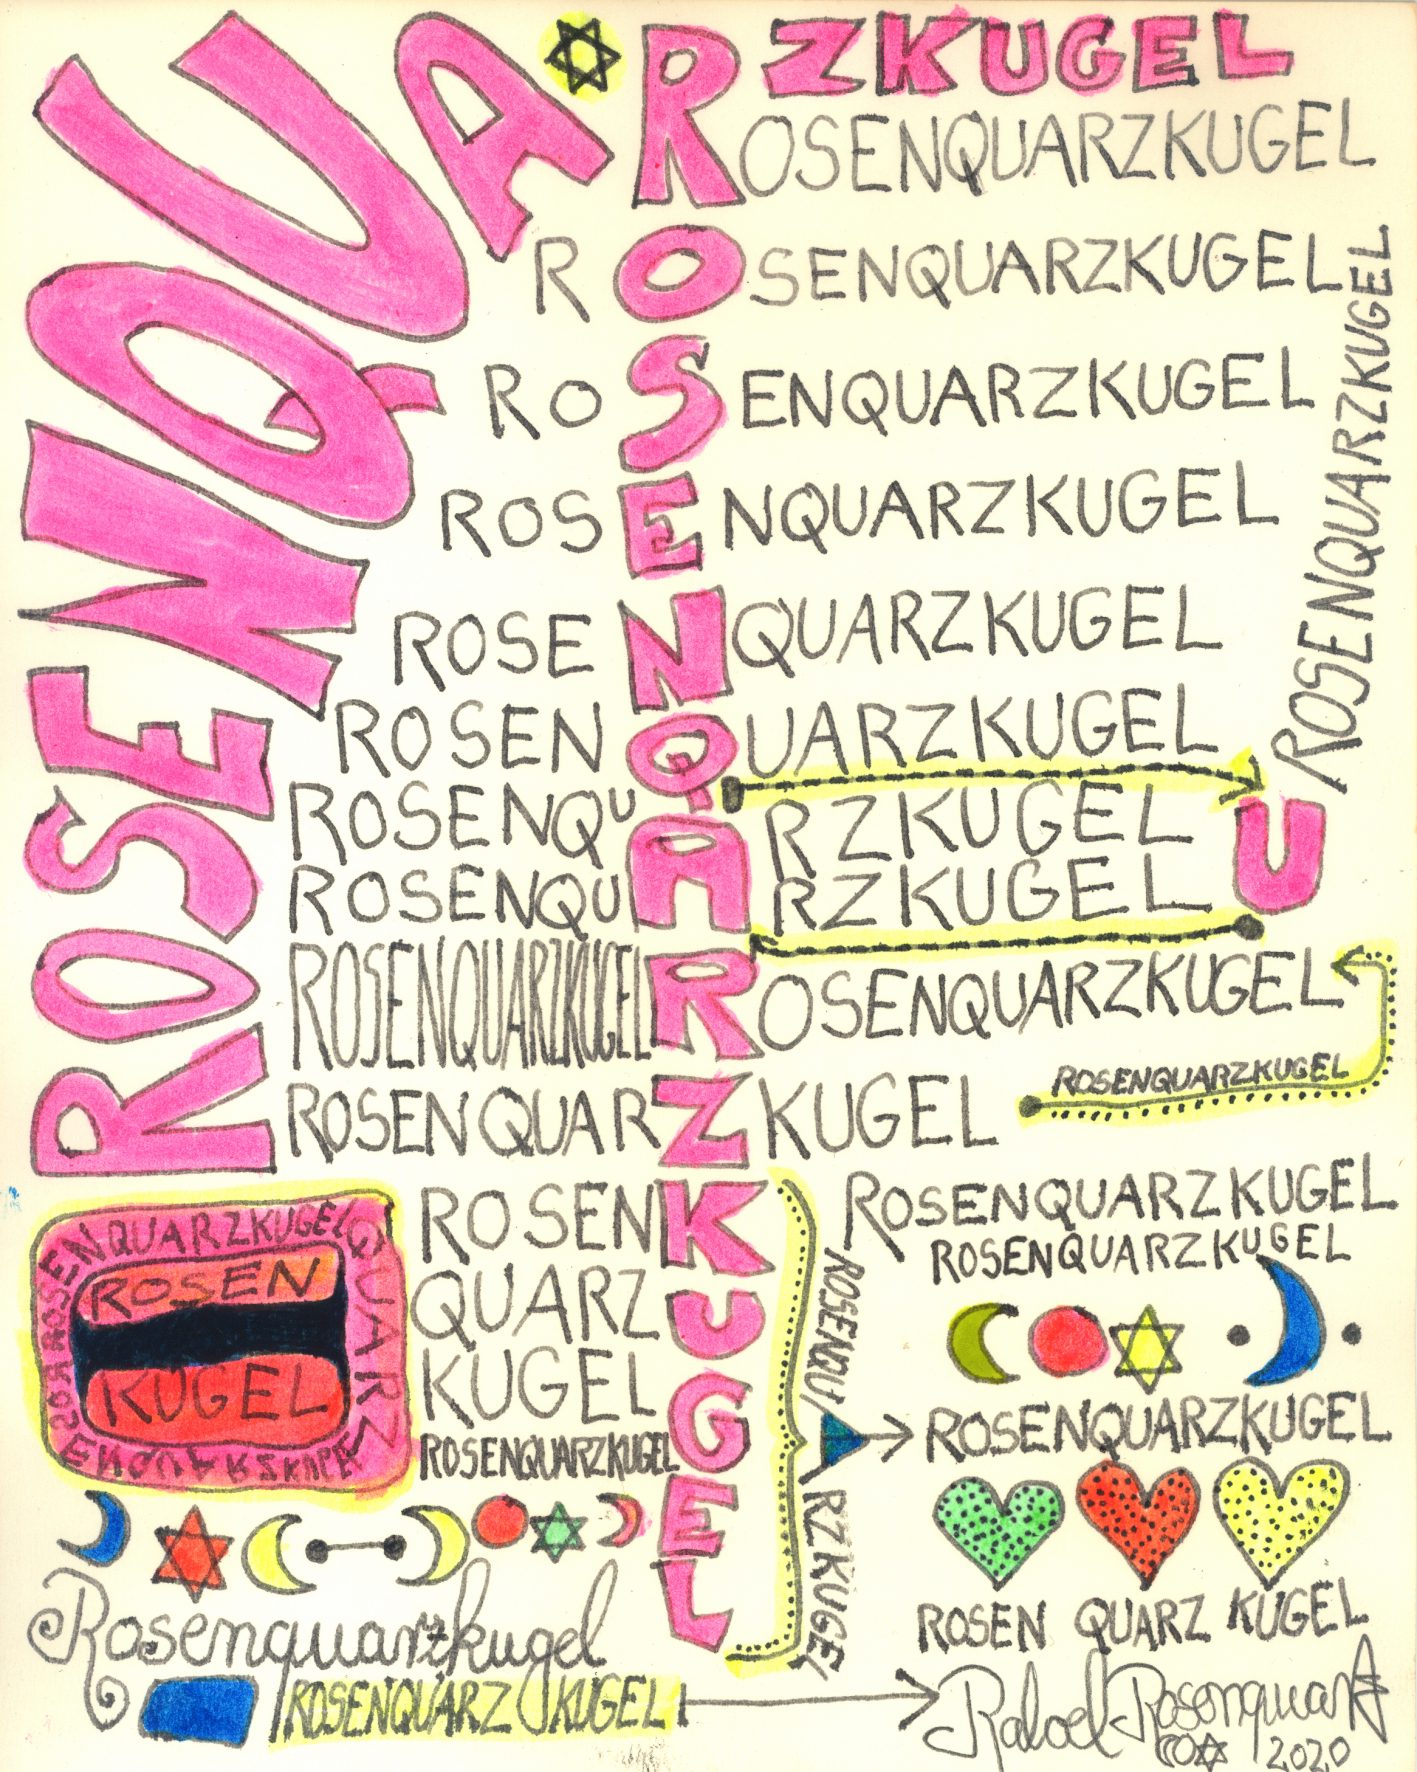 ROSENQUA
RZKUGEL
ROSENQARZKUGEL
ROSENQUARZKUGEL
ROSENQUARZKUGEL
ROSENQUARZKUGEL
ROSENQUARZKUGEL
ROSENQUARZKUGEL
ROSENQUARZKUGEL
ROSENQUARZKUGEL
ROSENQUARZKUGEL
U
ROSENQUARZKUGEL
ROSENQUARZKUGEL
ROSENQUARZKUGEL
ROSENQUARZKUGEL
ROSENQUARZKUGEL
ROSENQUARZKUGEL
ROSEN
QUARZ
KUGEL
ROSENQUARZKUGEL
ROSENQUARZKUGEL
QUARZ
ROSEN
KUGEL
ROSENQUARZKUGEL
ROSENQUARZKUGEL
ROSENQUARZKUGEL
ROSENQUARZKUGEL
ROSEN QUARZ KUGEL
Rosenquarzkugel
ROSENQUARZKUGEL
Rosenquarz
2020